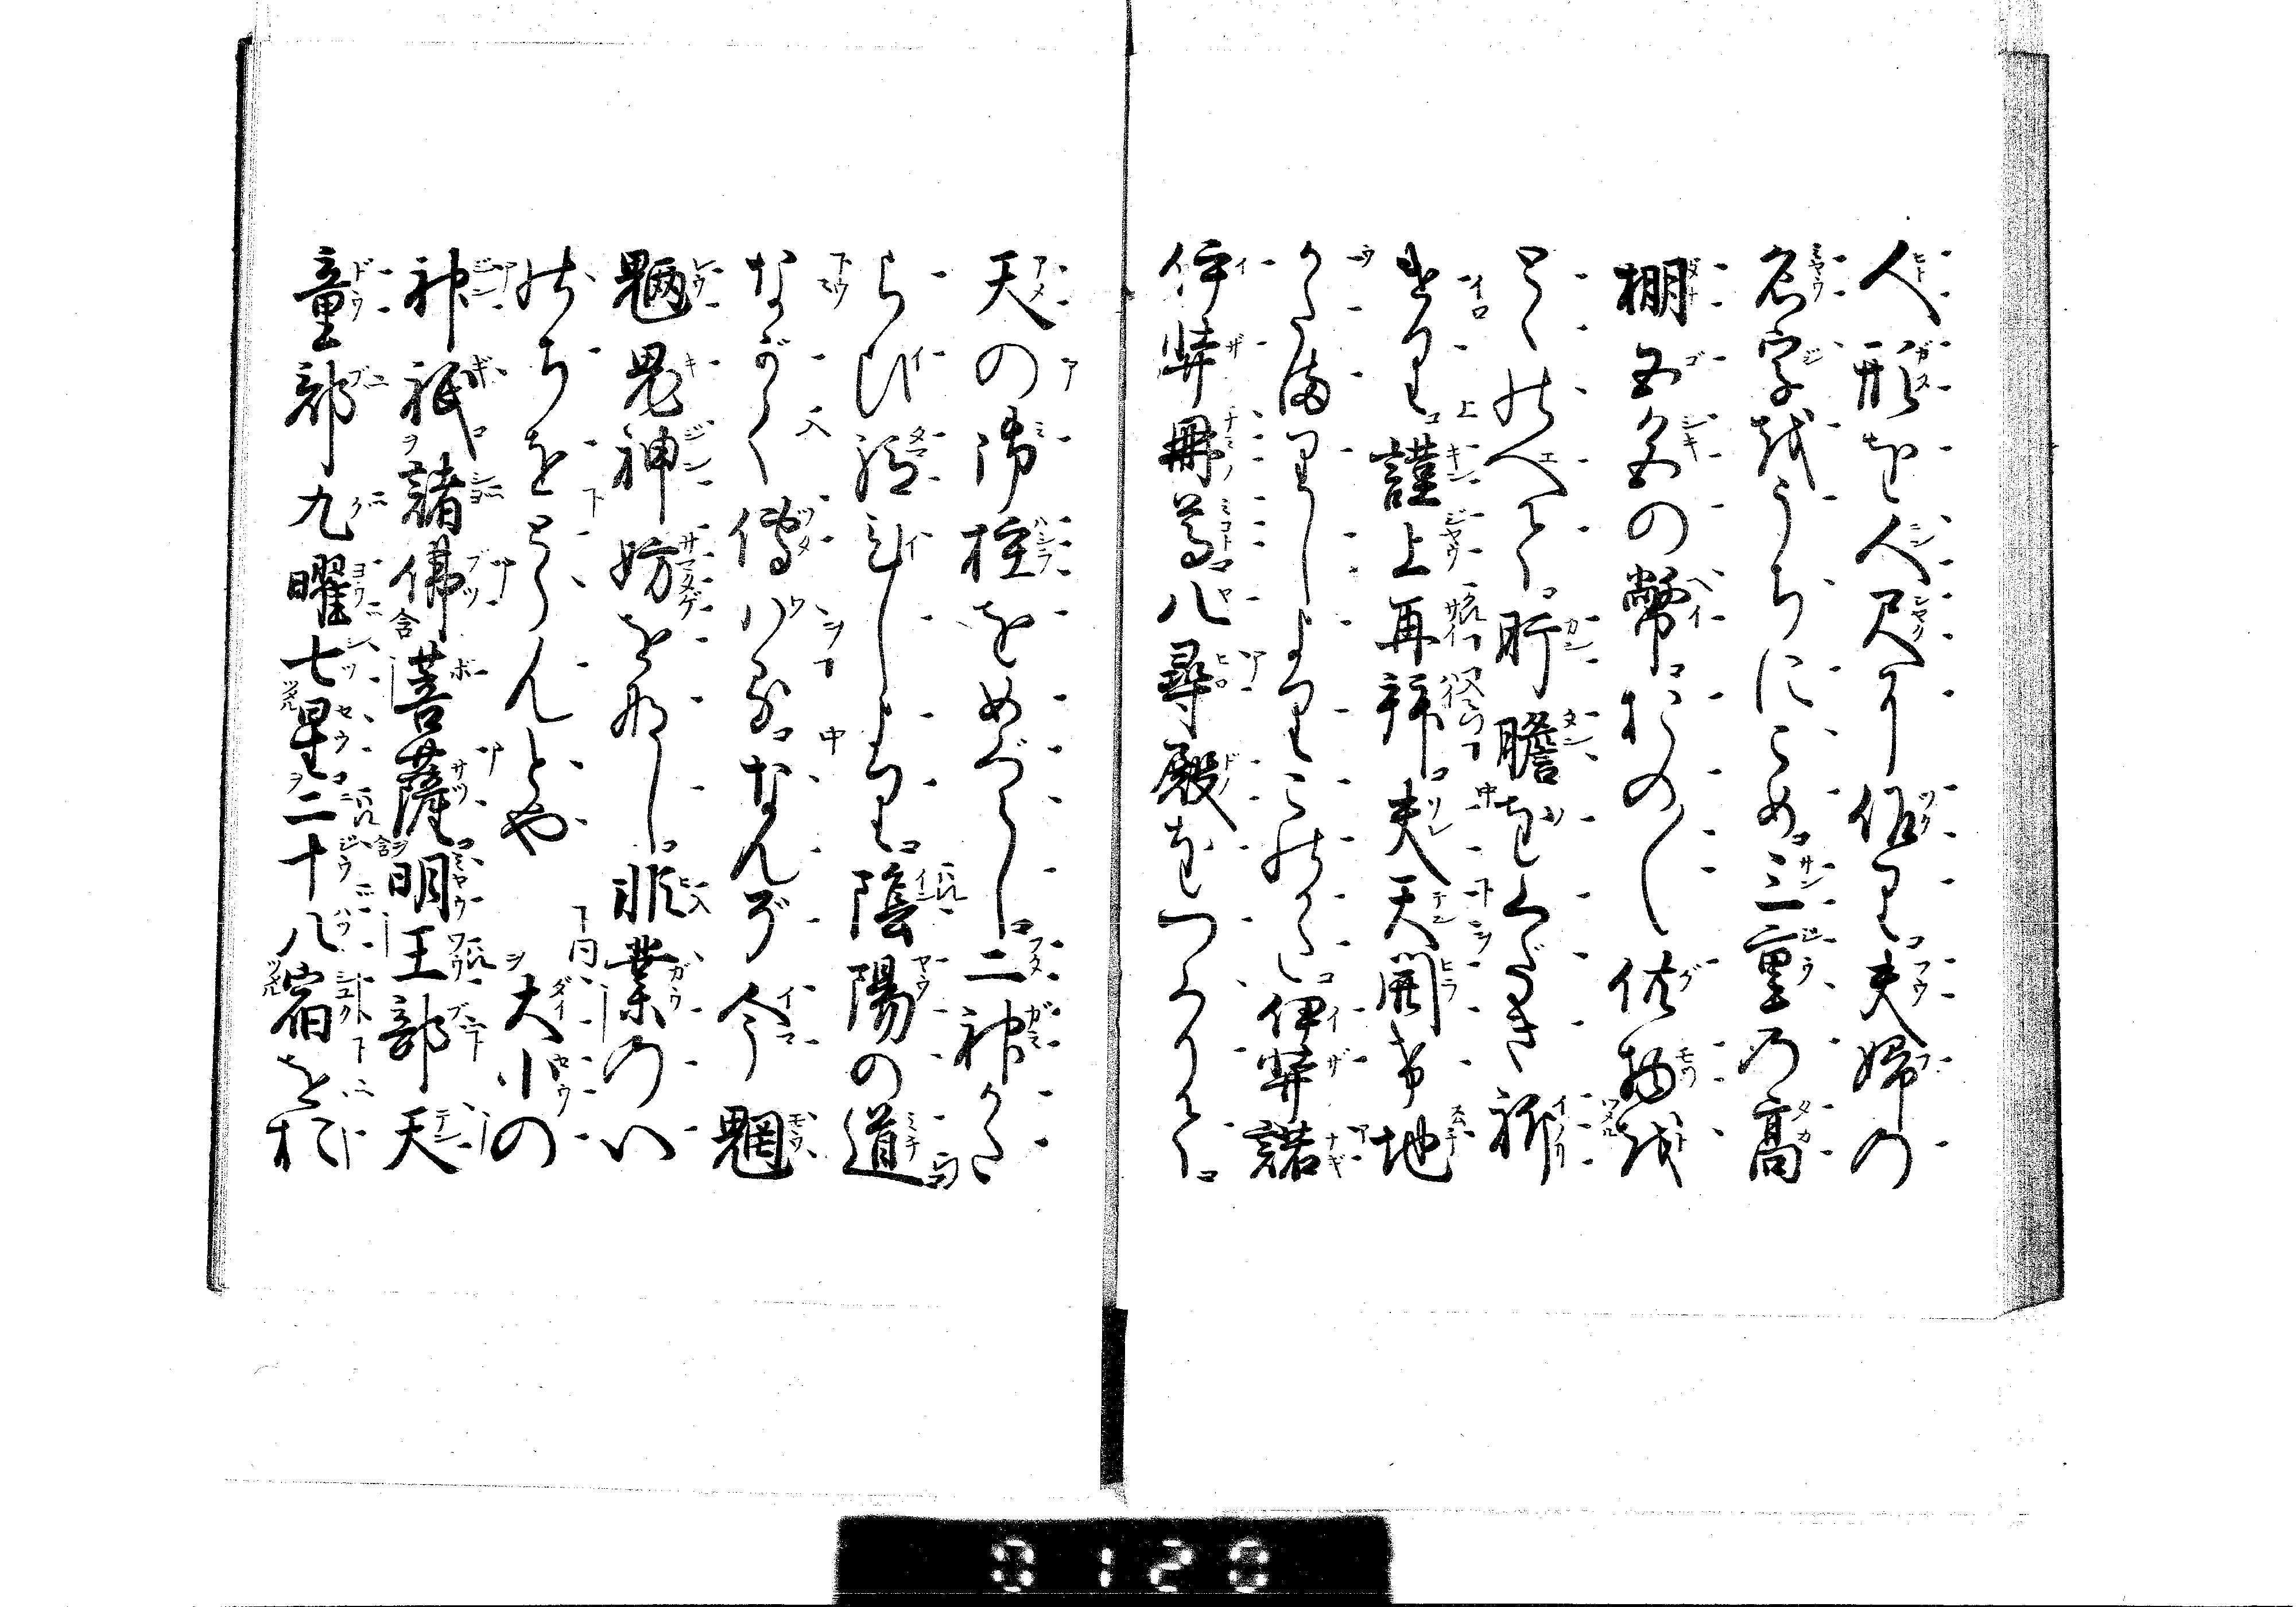 人形を人尺に作り夫婦の
名字をうちにこめ三重の高
棚五色の幣おの〳〵供物を
とゝのへて肝膽をくだき祈
けり謹上再拝夫天開け地
かたまりしよりこのかた伊弉諾
伊弉冊尊八尋殿をつくりて
天の御柱をめぐらし二神かた
らひ給ひしより陰陽の道
ながく傳はるなんぞ今魍
魎鬼神妨をなし非業のい
のちをとらんとや大小の
神祇諸佛菩薩明王部天
童部九曜七星二十八宿をお
0120